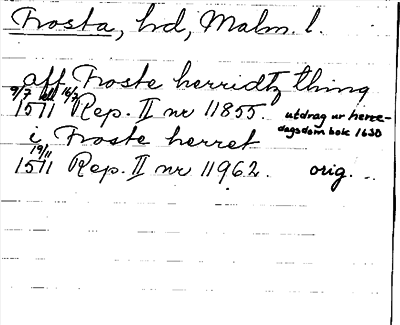 Frosta, hd, Malm. l.
aff Froste herridtz thing
9/7 el. 16/7
1571 Rep. II nr 11855. utdrag ur herre-
dagsdom bok 1630
i Froste herret
19/11
1571 Rep. II nr 11962. orig.